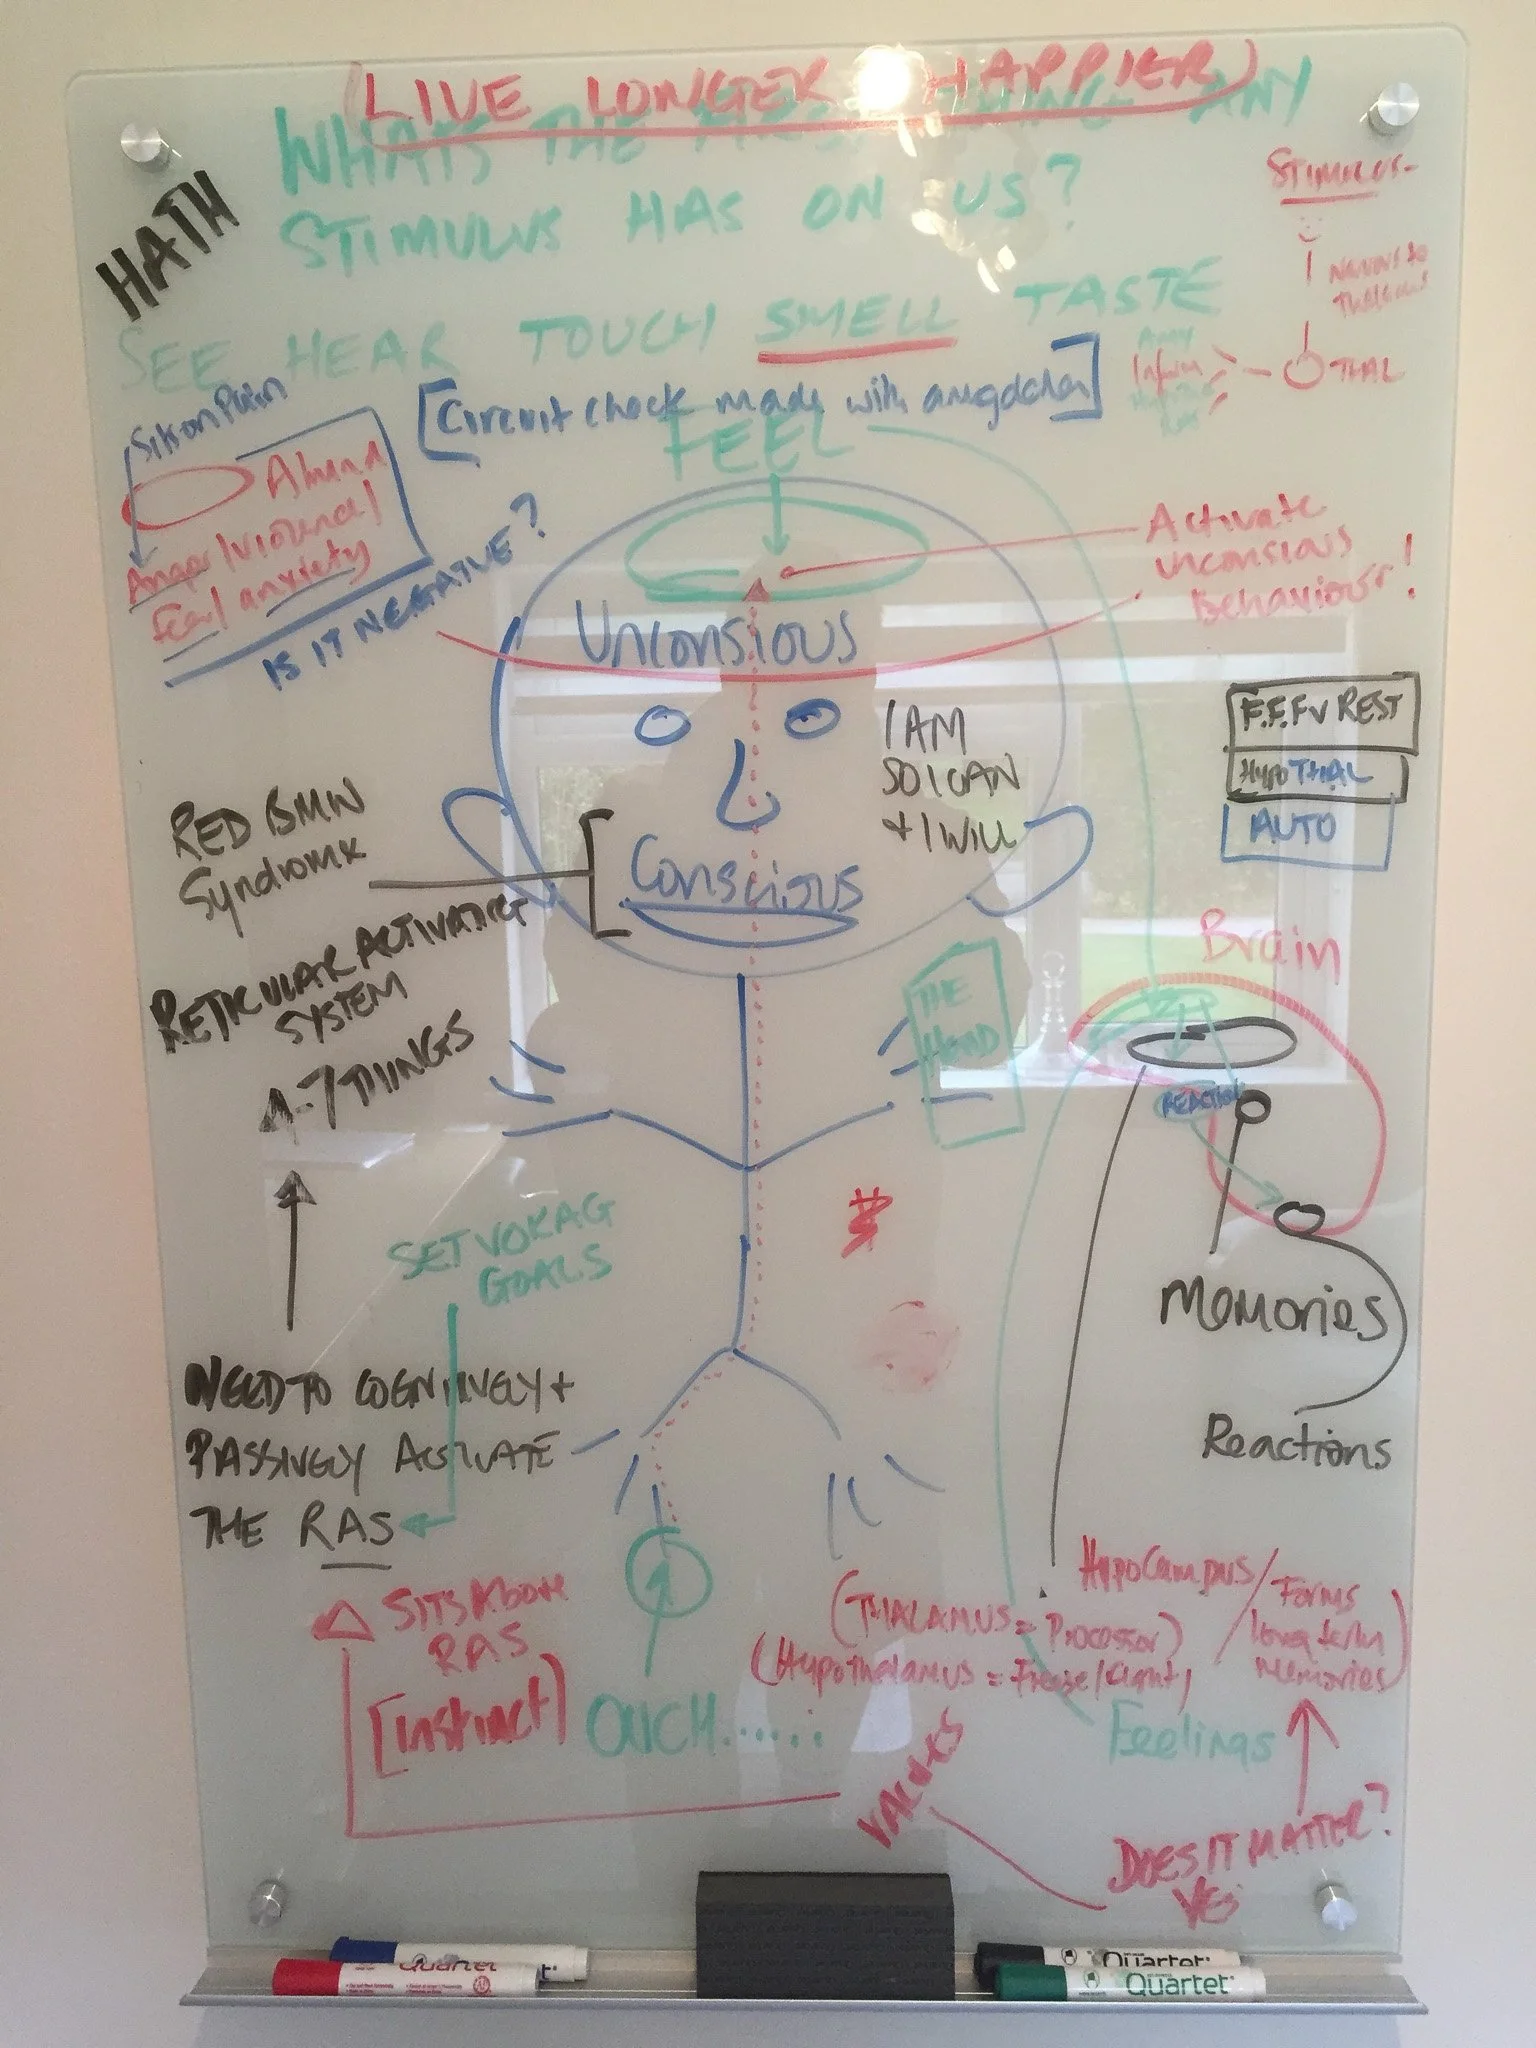 (LIVE LONGER HAPPIER)
WHATS THE FIRST THING ANY
STIMULUS HAS ON US?
HATH
STIMULUS-
SEE HEAR TOUCH SMELL TASTE
THAL
[Circuit check made with amygdala]
FEEL
Anger/violence/
fear/anxiety
IS IT NEGATIVE?
Activate
unconsious
Behaviour!
UNCONSIOUS
I AM
SO I CAN
+ I WILL
F.F.F v REST
Hypo THAL
AUTO
RED BMW
Syndrome
Conscious
RETICULAR ACTIVATING
SYSTEM
THINGS
THE
HEAD
Brain
REACTION
SET VOKAG
GOALS
Memories
Reactions
NEED TO COGNITIVELY +
PASSIVELY ACTIVATE
THE RAS
SITS Above
RAS
[instinct]
OUCH......
HYPOCAMPUS/
Forms
long term
Memories)
(THALAMUS = Processor)
(Hypothalamus =
Feelings
VALUES
DOES IT MATTER?
YES
Quartet
Quartet
Quartet
Quartet